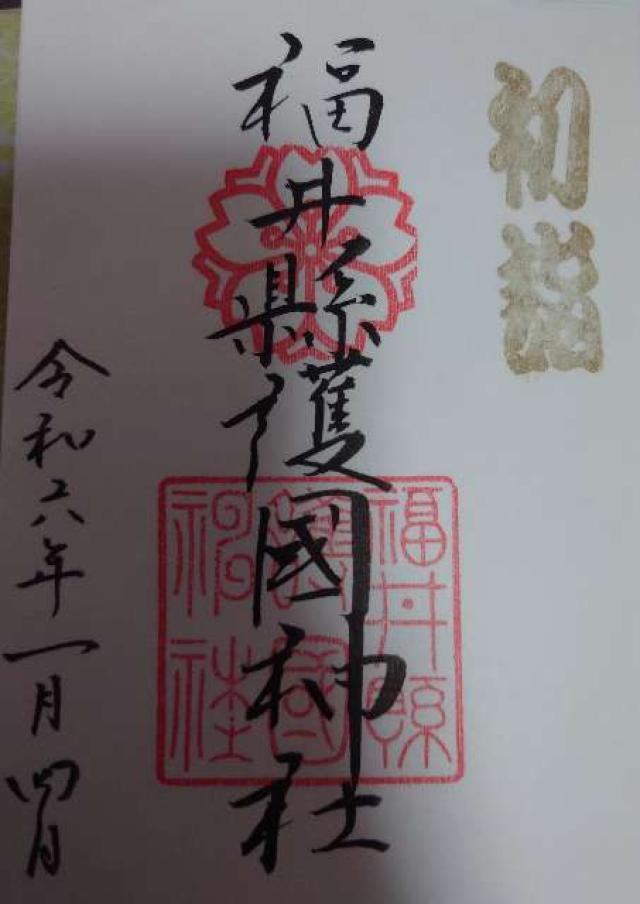 初詣
福井縣護國神社
福井縣護國神社
令和六年一月四日